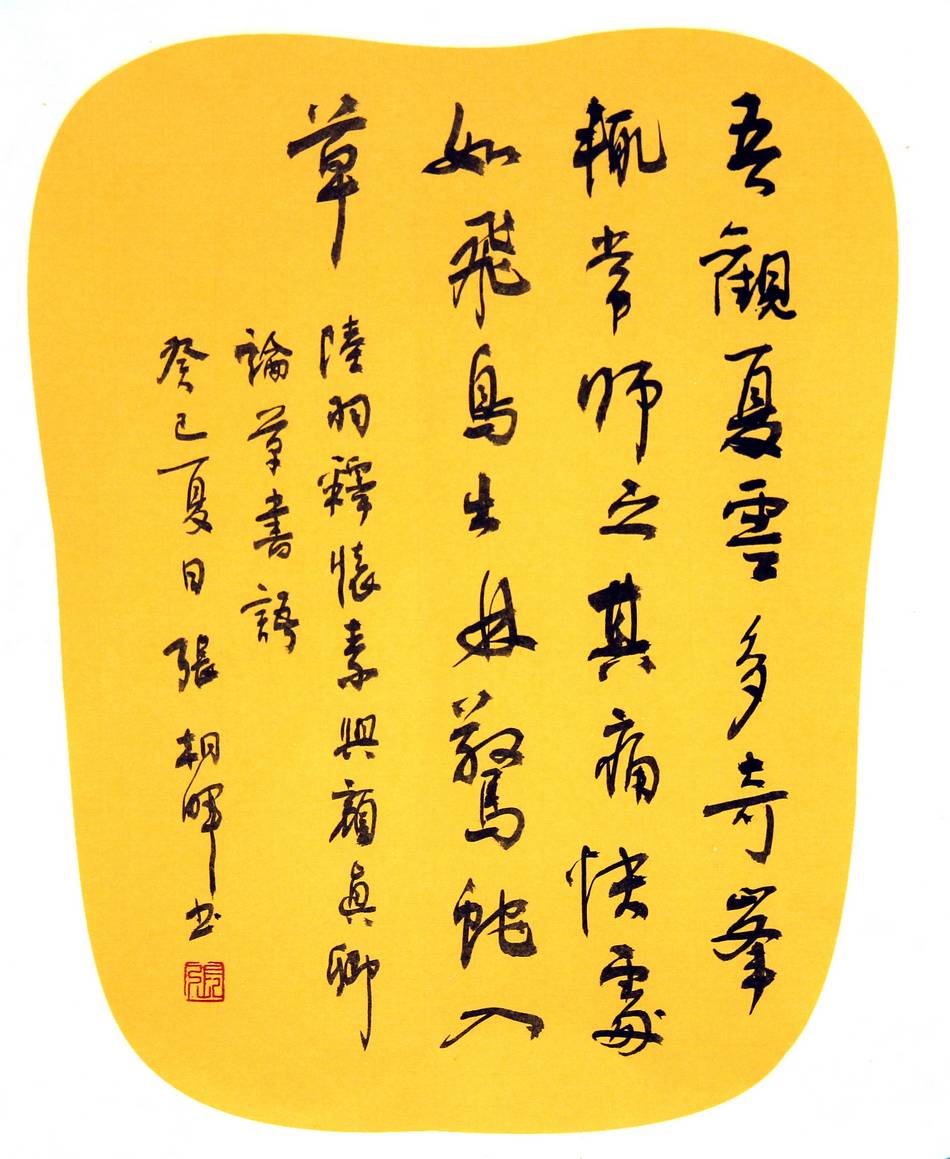 吾觀夏雲多奇峯
輒常師之其痛快處
如飛鳥出林驚蛇入
草
陸羽釋懷素與顏真卿
論草書語
癸巳夏日張相暉书
張